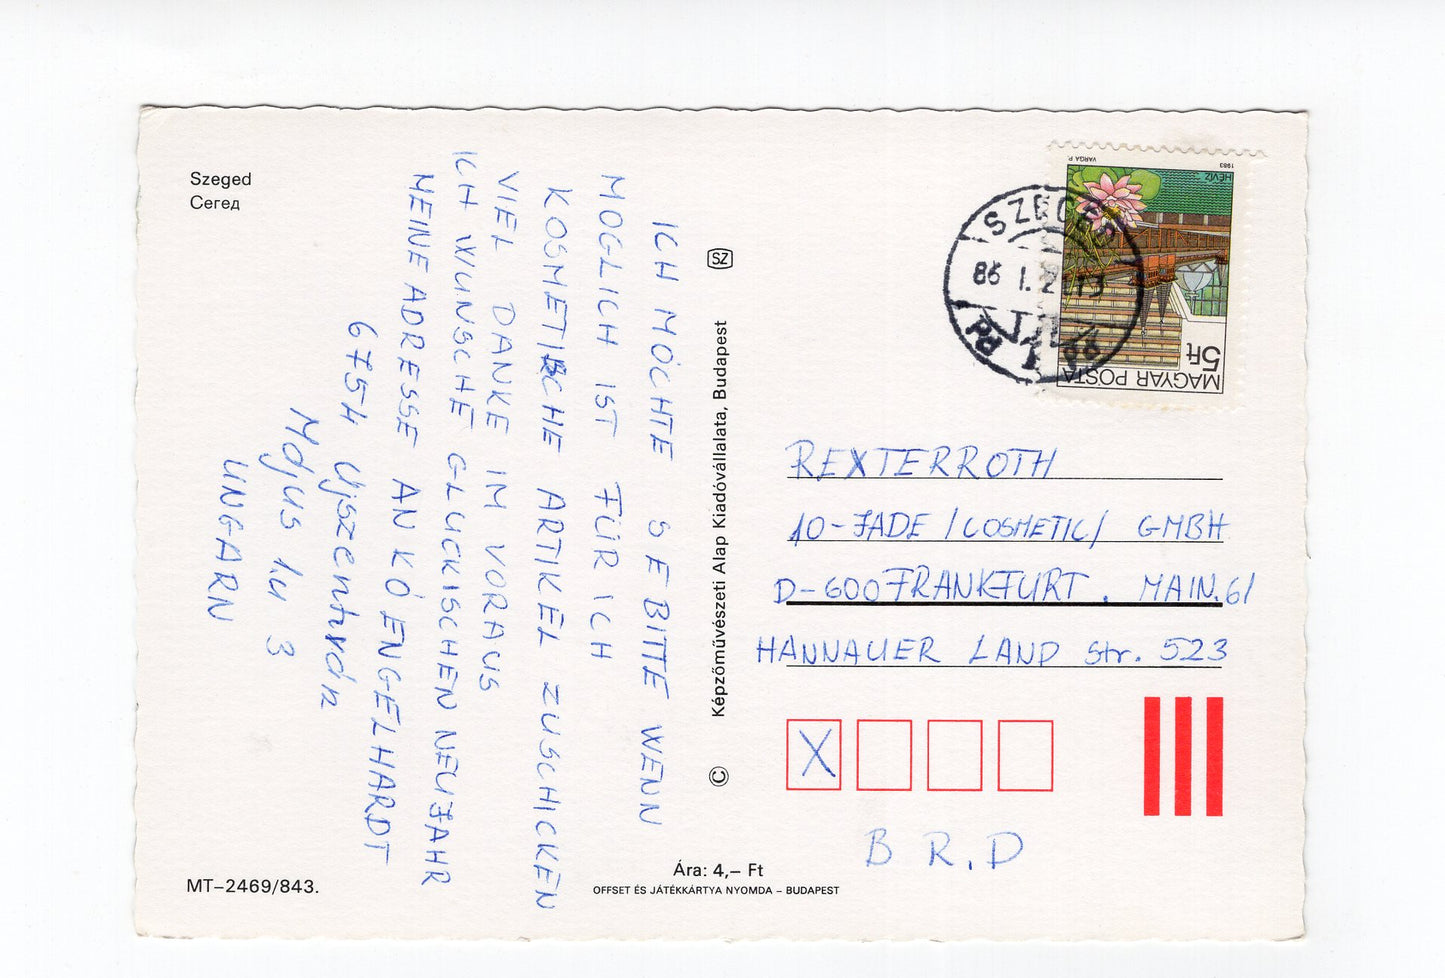 Szeged
Сегед
ICH MÖCHTE SEBITTE WENN
MOGLICH IST FÜR ICH
KOSMETISCHE ARTIKEL ZUSCHICKEN
VIEL DANKE IM VORAUS
ICH WUNSCHE GLUCKISCHEN NEUJAHR
MEINE ADRESSE AN KÓ ENGELHARDT
6754 Ujszentván
Május 1.u 3
UNGARN
MT–2469/843.
SZ
© Képzőművészeti Alap Kiadóvállalata, Budapest
Ára: 4,– Ft
OFFSET ÉS JÁTÉKKÁRTYA NYOMDA – BUDAPEST
1983
VARGA P.
HÉVÍZ
5Ft
MAGYAR POSTA
SZEGED
86 I. 2
REXTERROTH
10-JADE /COSMETIC/ GMBH
D-600 FRANKFURT. MAIN.61
HANNAUER LAND Str. 523
X
B R. D